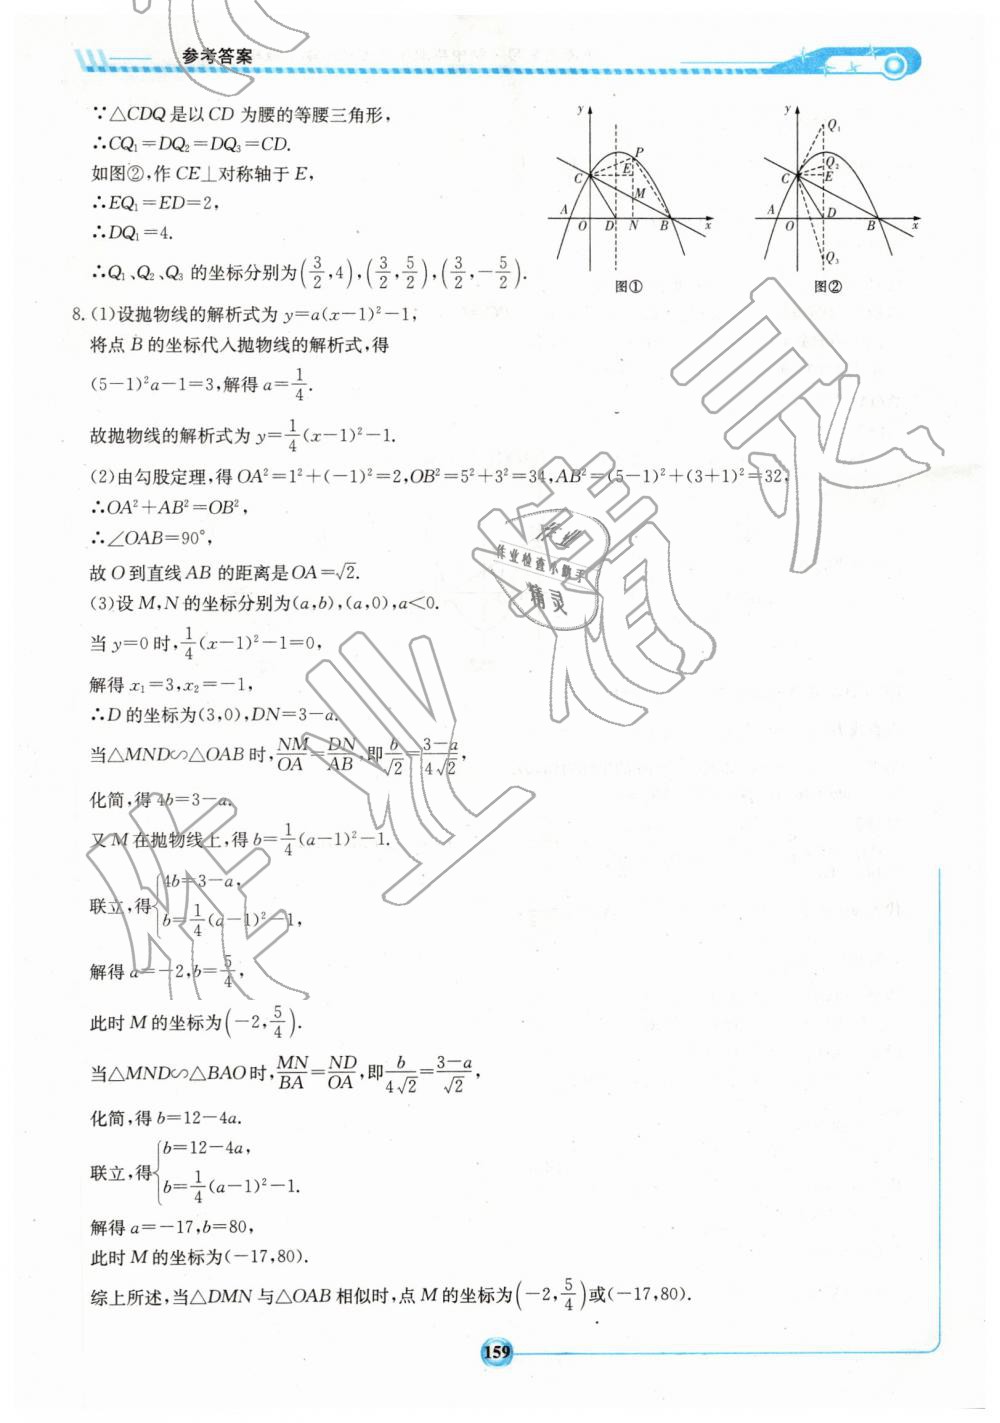 参考答案
∵△CDQ是以CD为腰的等腰三角形，
∴CQ₁=DQ₂=DQ₃=CD.
如图②，作CE⊥对称轴于E，
∴EQ₁=ED=2，
∴DQ₁=4.
∴Q₁、Q₂、Q₃的坐标分别为(3/2,4),(3/2,5/2),(3/2,-5/2).
y C P E M A O D N B x
图①
y Q₁ Q₂ C E A O D B x Q₃
图②
8.(1)设抛物线的解析式为y=a(x-1)²-1，
将点B的坐标代入抛物线的解析式，得
(5-1)²a-1=3,解得a=1/4.
故抛物线的解析式为y=1/4(x-1)²-1.
(2)由勾股定理，得OA²=1²+(-1)²=2,OB²=5²+3²=34,AB²=(5-1)²+(3+1)²=32，
∴OA²+AB²=OB²，
∴∠OAB=90°，
故O到直线AB的距离是OA=√2.
(3)设M,N的坐标分别为(a,b),(a,0),a<0.
当y=0时，1/4(x-1)²-1=0，
解得x₁=3,x₂=-1，
∴D的坐标为(3,0),DN=3-a.
当△MND∽△OAB时，NM/OA=DN/AB，即b/√2=(3-a)/4√2，
化简，得4b=3-a.
又M在抛物线上，得b=1/4(a-1)²-1.
联立，得{4b=3-a，
b=1/4(a-1)²-1，
解得a=-2,b=5/4，
此时M的坐标为(-2,5/4).
当△MND∽△BAO时，MN/BA=ND/OA，即b/4√2=(3-a)/√2，
化简，得b=12-4a.
联立，得{b=12-4a，
b=1/4(a-1)²-1.
解得a=-17,b=80，
此时M的坐标为(-17,80).
综上所述，当△DMN与△OAB相似时，点M的坐标为(-2,5/4)或(-17,80).
159
作业
作业检查小助手
精灵
作业精灵